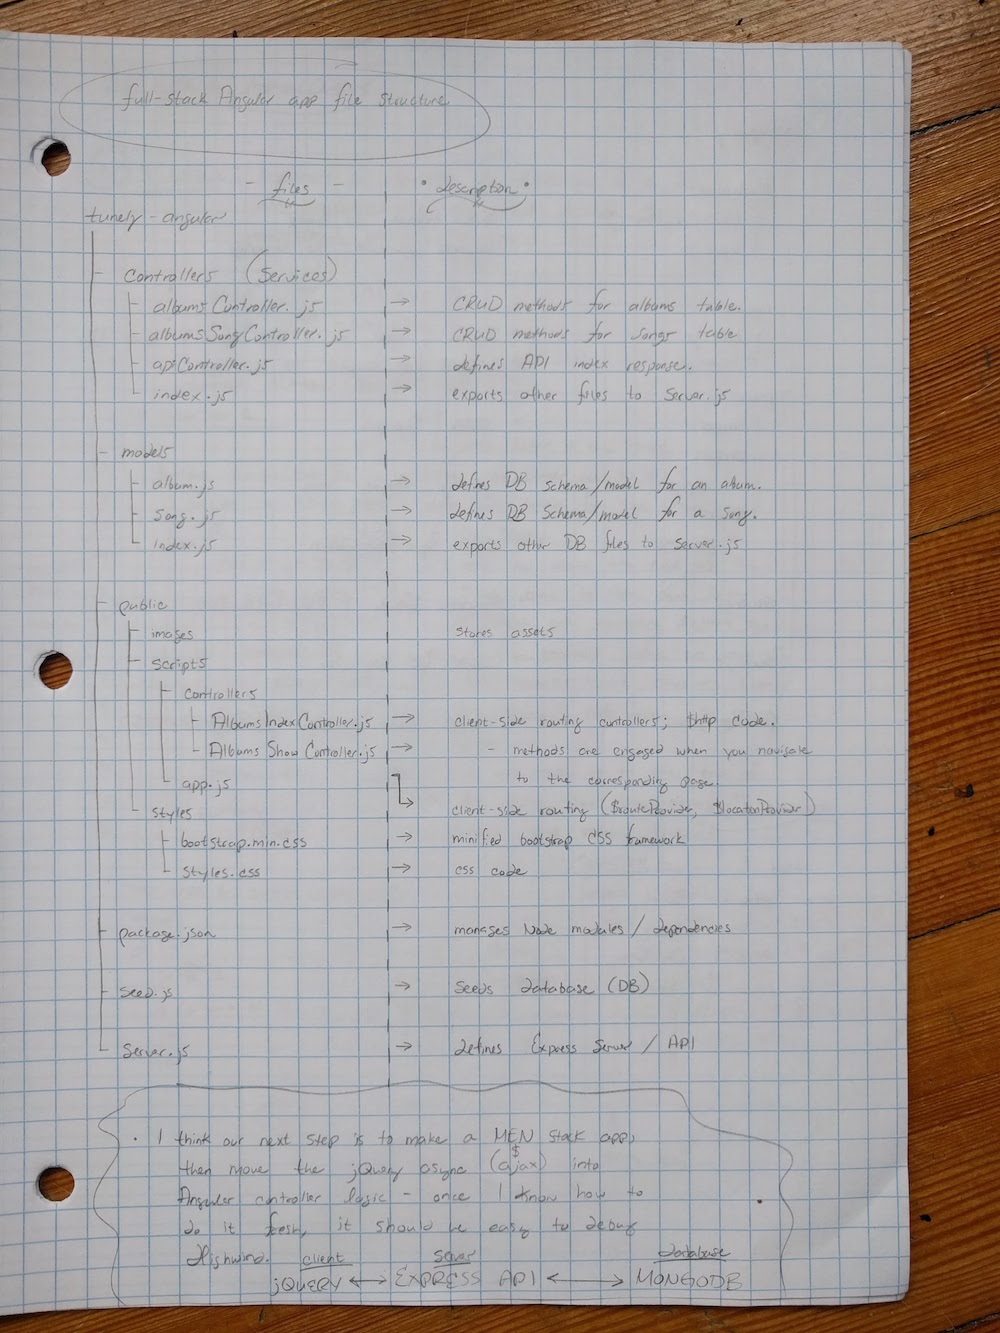 full-stack Angular app file structure
- files - • description •
tunely-angular
controllers (services)
albumsController.js → CRUD methods for albums table.
albumsSongController.js → CRUD methods for songs table
apiController.js → defines API index response.
index.js → exports other files to server.js
models
album.js → defines DB schema/model for an album.
song.js → defines DB schema/model for a song.
index.js → exports other DB files to server.js
public
images stores assets
scripts
controllers
AlbumsIndexController.js → client-side routing controllers; $http code.
AlbumsShowController.js → - methods are engaged when you navigate
to the corresponding page.
app.js
client-side routing ($routeProvider, $locationProvider)
styles
bootstrap.min.css → minified bootstrap CSS framework
styles.css → css code
package.json → manages Node modules / dependencies
seed.js → seeds database (DB)
server.js → defines Express Server / API
• I think our next step is to make a MEN stack app,
then move the jQuery async ($ajax) into
Angular controller logic - once I know how to
do it fresh, it should be easy to debug
Highwind. client server database
jQUERY ↔ EXPRESS API ↔ MONGODB